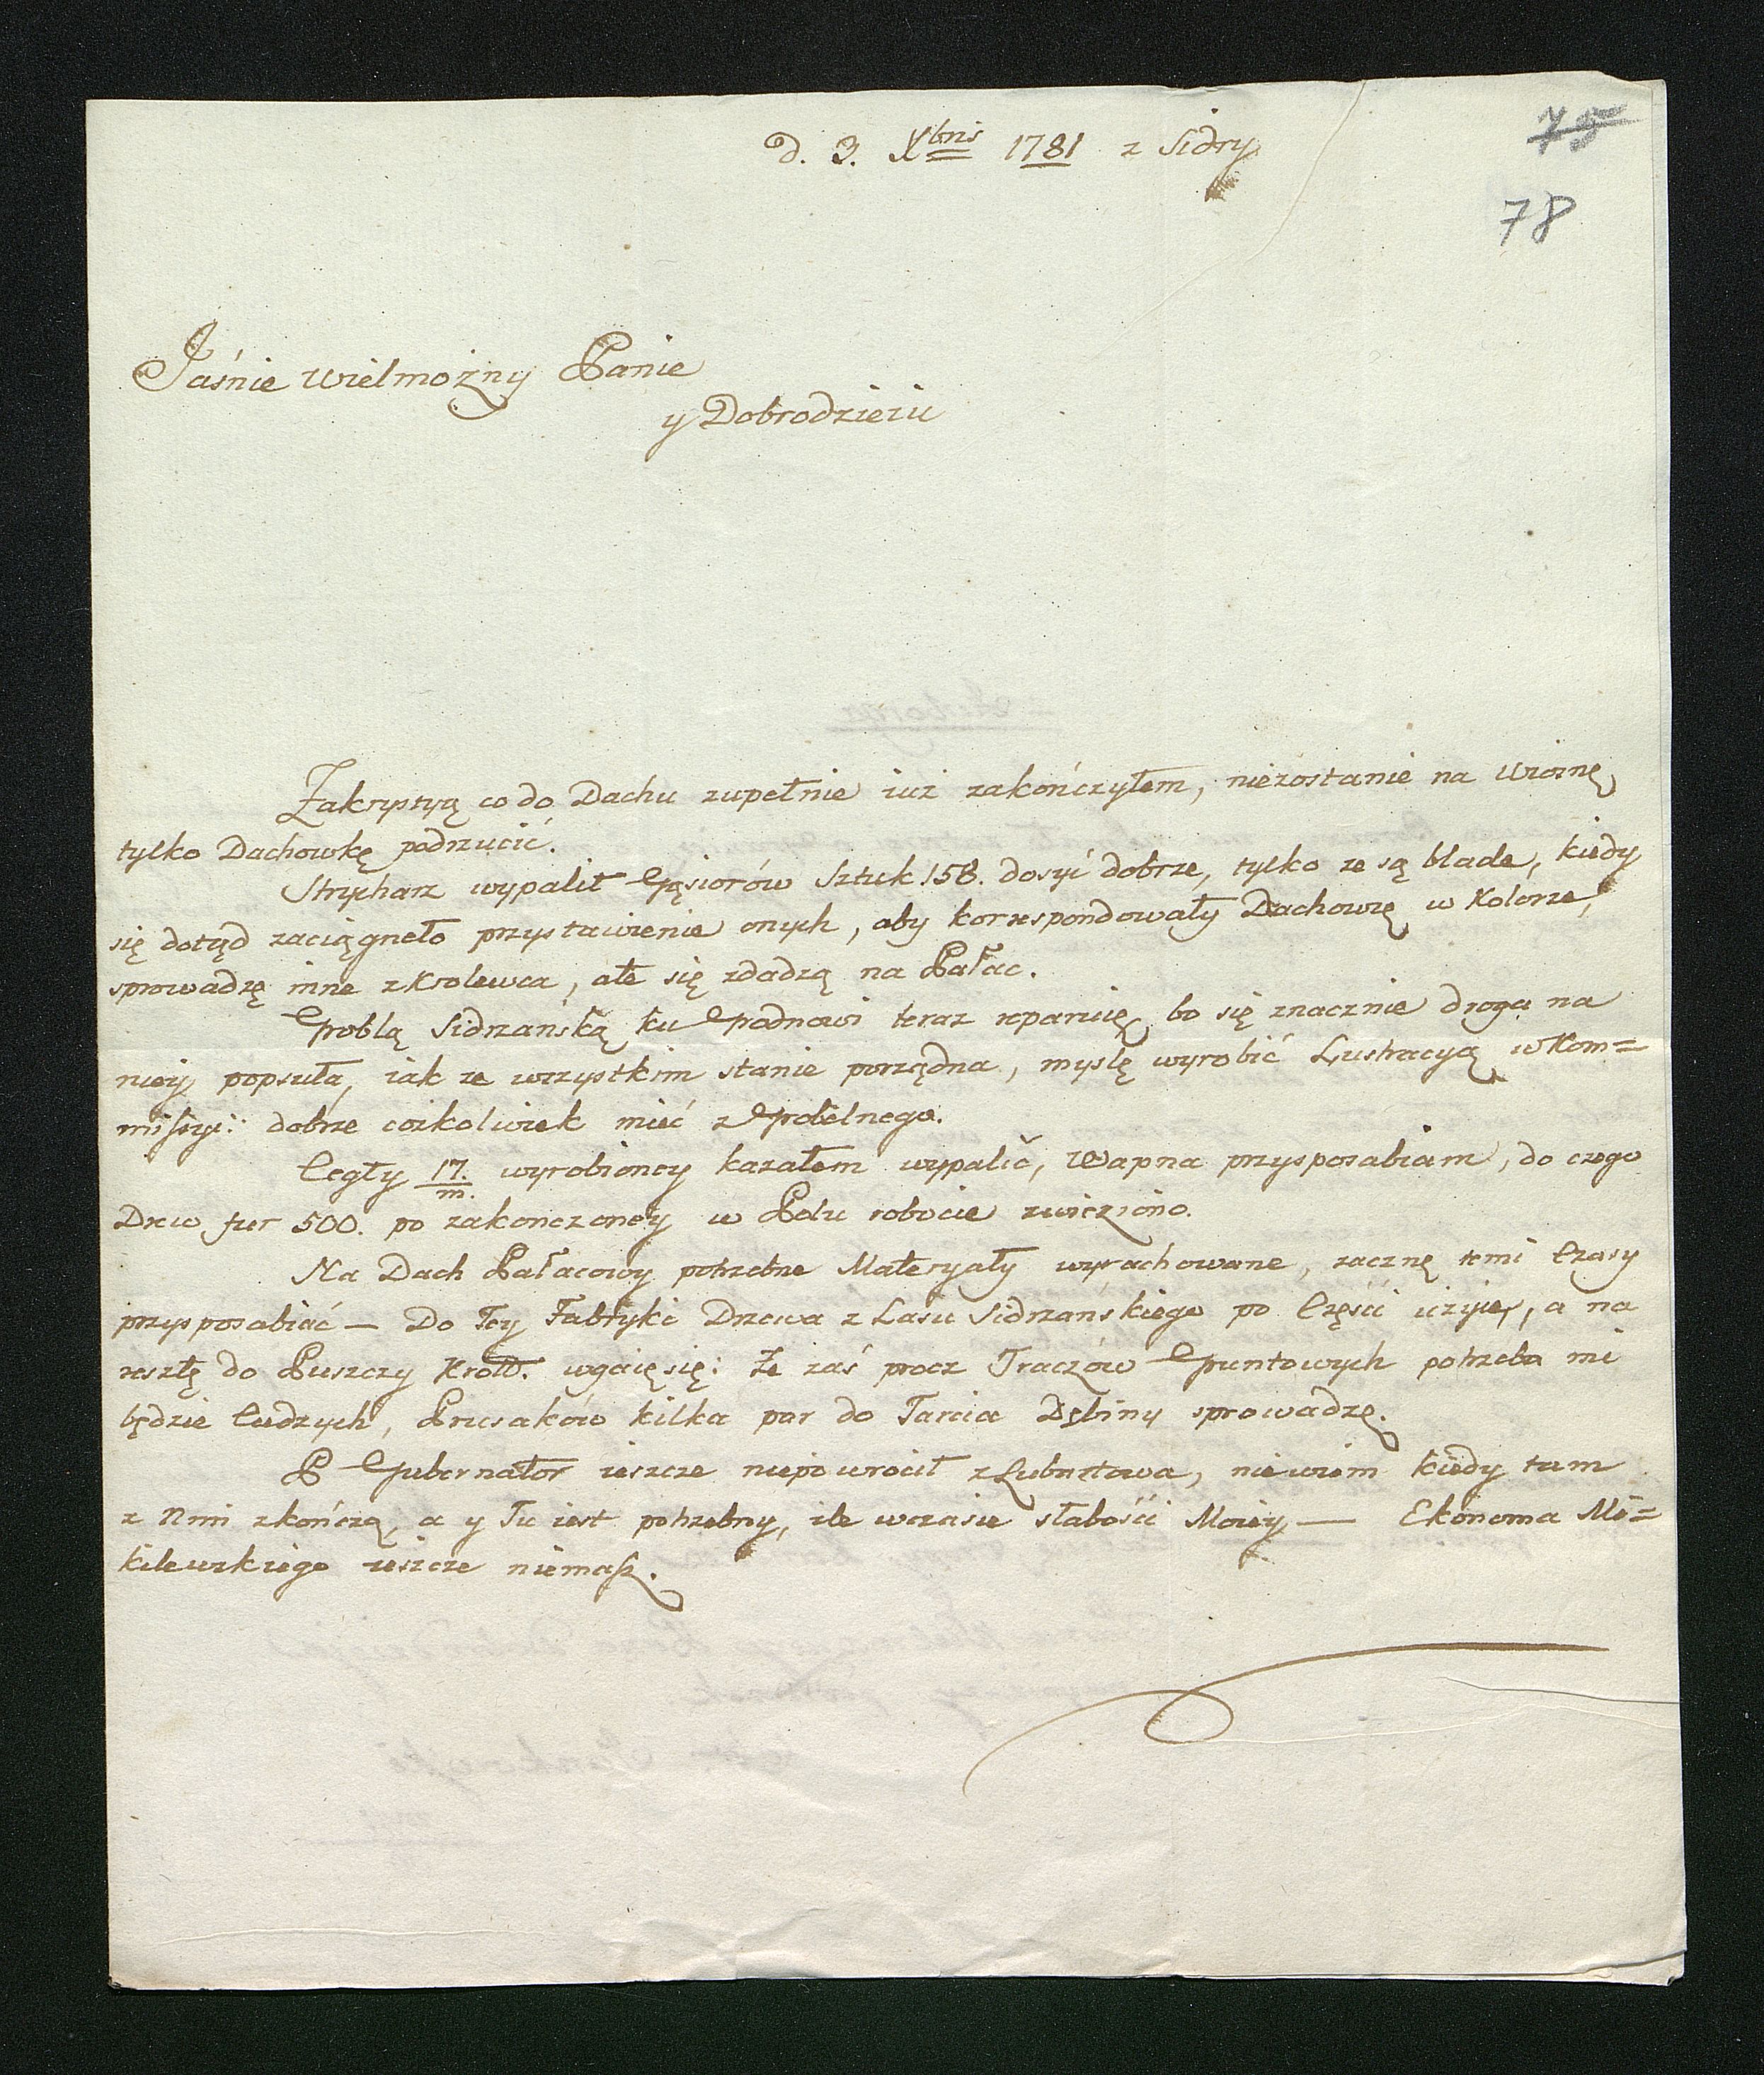 d. 3. Xbris 1781 z Sidry
75
78
Jaśnie Wielmożny Panie
y Dobrodzieiu
Zakrystyą co do Dachu zupełnie iuż zakończyłem, niezostanie na Wiosnę
tylko Dachowkę podrzucić.
Strycharz wypalił Gąsiorów Sztuk 158. dosyć dobrze, tylko ze są blade, kiedy
się dotąd zaciągneło przystawienie onych, aby korrespondowały Dachowię w Kolorze,
sprowadzę inne z Krolewca, ale się zdadzą na Pałac.
Groblą Sidrzanską ku Grodnowi teraz reparuię bo się znacznie droga na
niey popsuła, iak ze wszystkim stanie porządna, myslę wyrobić Lustracyą w Kom=
missyi: dobrze cożkolwiek mieć z Grobelnego.
Cegły 17/m. wyrobioney kazałem wypalić, Wapna przysposabiam, do czego
Drew fur 500. po zakonczoney w Polu robocie zwieziono.
Na Dach Pałacowy potrzebne Materyały wyrachowane, zacznę temi Czasy
przysposabiać — Do Tey Fabryki Drzewa z Lasu Sidrzańskiego po Części użyię, a na
resztę do Puszczy Krolł. wgcię się: Ze zaś procz Traczów Gruntowych potrzeba mi
będzie Cudzych, Prusaków kilka par do Tarcia Dębiny sprowadzę.
P Gubernator ieszcze niepowrocił z Lubartowa, niewiem kiedy tam
z Nim zkończą, a y Tu iest potrzebny, ile wczasie słabości Moiey — Ekonoma Mi=
kilewskiego ieszcze niemasz.